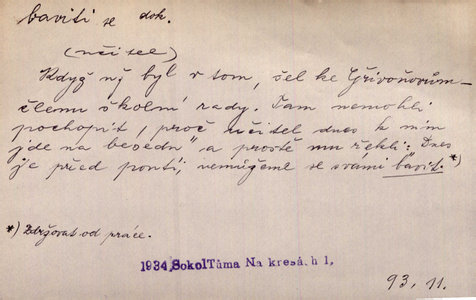 baviti se dok.
(učitel)
Když už byl v tom, šel ke Hřivoňovům –
členu školní rady. Tam nemohli
pochopit, proč učitel dnes k nim
jde na besedu" a prostě mu řekli: Dnes
je před poutí, nemůžeme se s vámi bavit. *)
*) Zdržovat od práce.
1934, SokolTůma Na kresá.h 1,
93, 11.